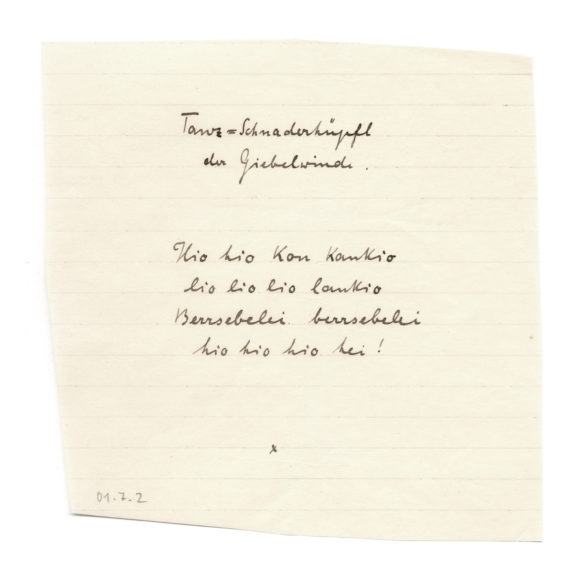 Tanz=Schnaderhüpfl
der Giebelwinde.
Hio hio Kon Kankio
lio lio lio lankio
Berrsebelei berrsebelei
hio hio hio hei!
x
01.7.2